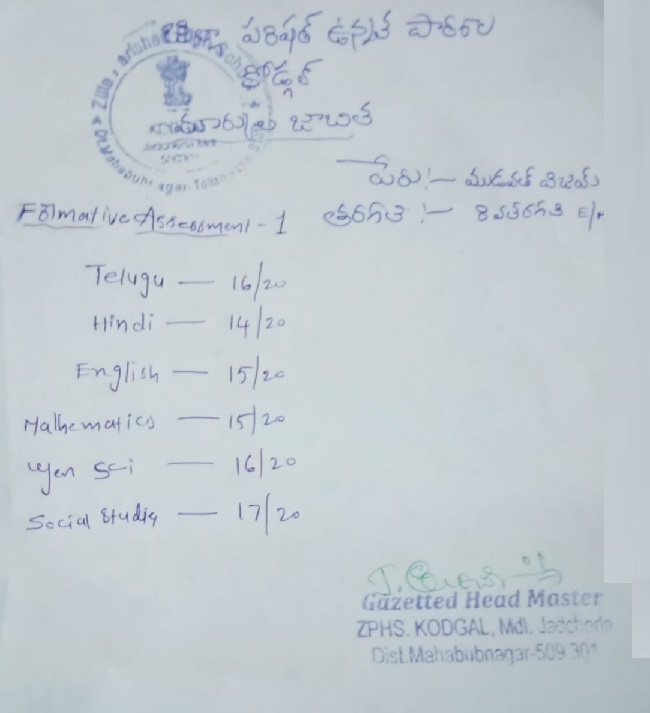 జిల్లా పరిషత్ ఉన్నత పాఠశాల
కోడ్గల్
మార్కుల జాబిత
పేరు :- ముడవత్ విజయ్
Formative Assessment - 1
తరగతి :- 8 వతరగతి E/M
Telugu — 16/20
Hindi — 14/20
English — 15/20
Mathematics — 15/20
Gen Sci — 16/20
Social Studies — 17/20
Gazetted Head Master
ZPHS. KODGAL, Mdl. Jadcherla
Dist.Mahabubnagar-509 301